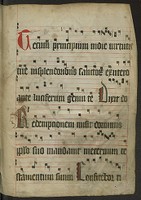 Tecum principium in die virtutis
tue in splendoribus sanctorum ex utero
ante luciferum genui te Dixit do
Redemptionem misit dominus
ipso suo mandavit in eternum te
stamentum suum Confitebor ti